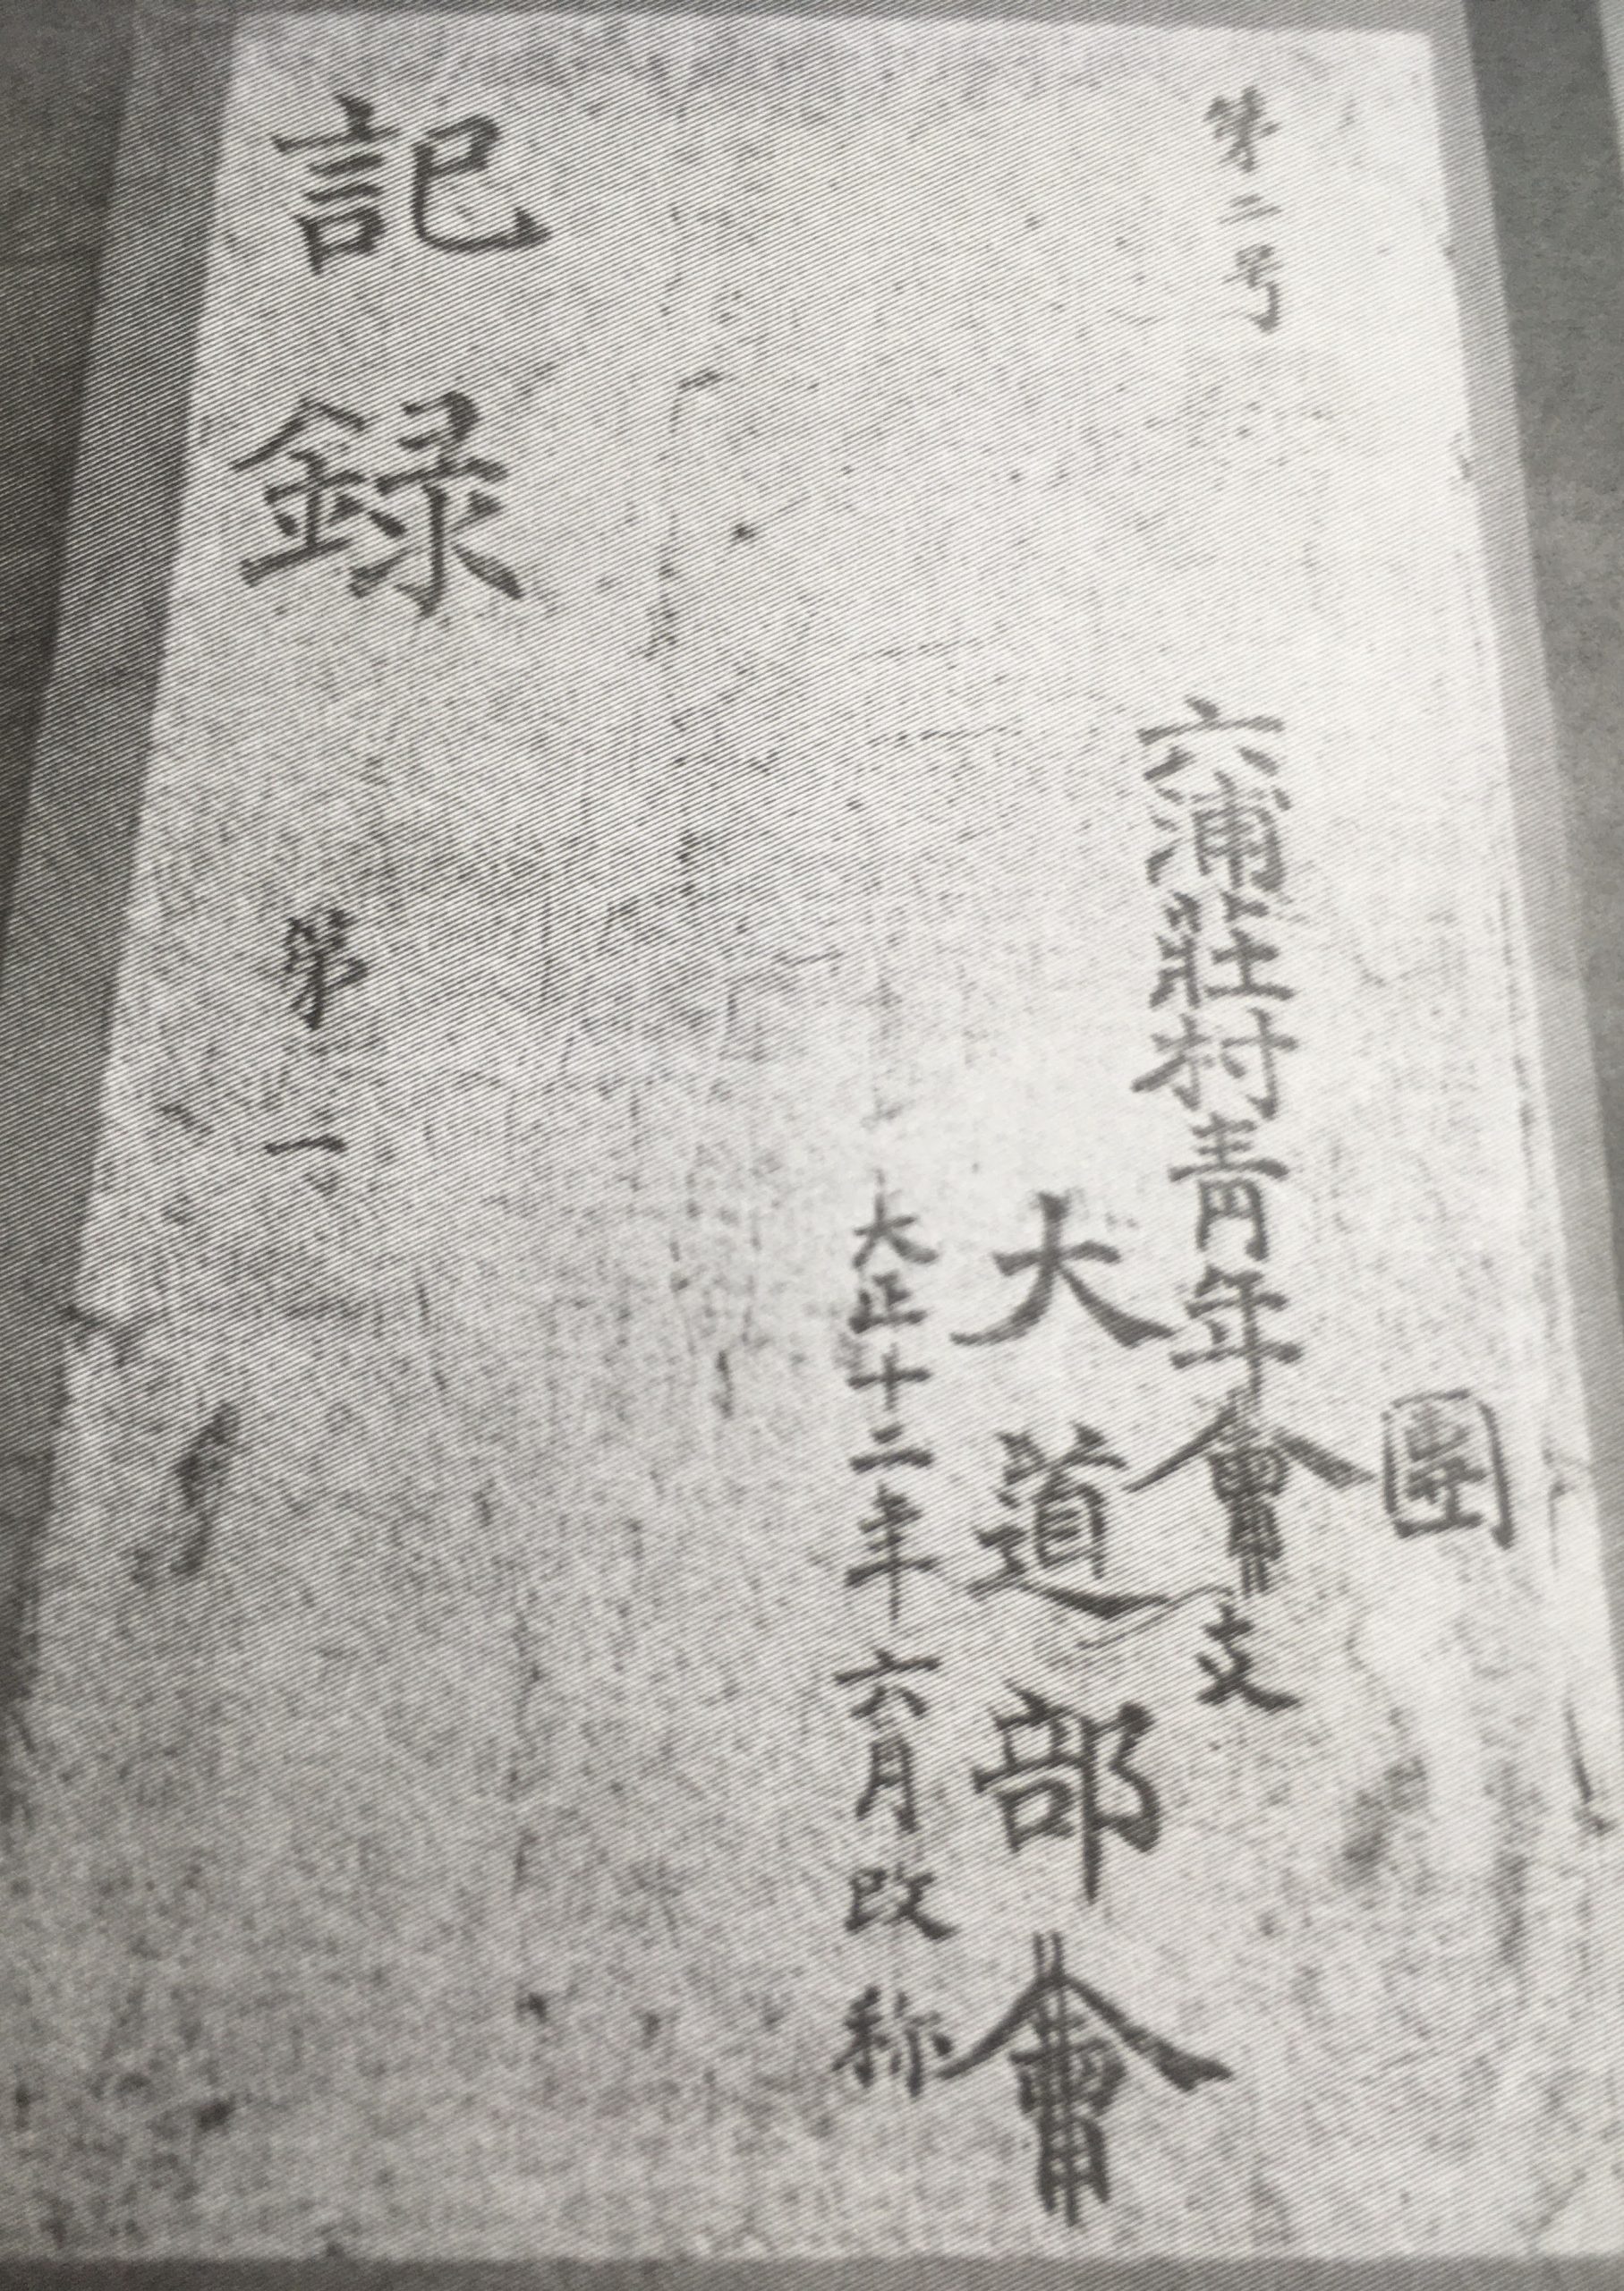 第二号
團
六浦莊村青年會支
大道部會
大正十二年六月改称
記錄 第一